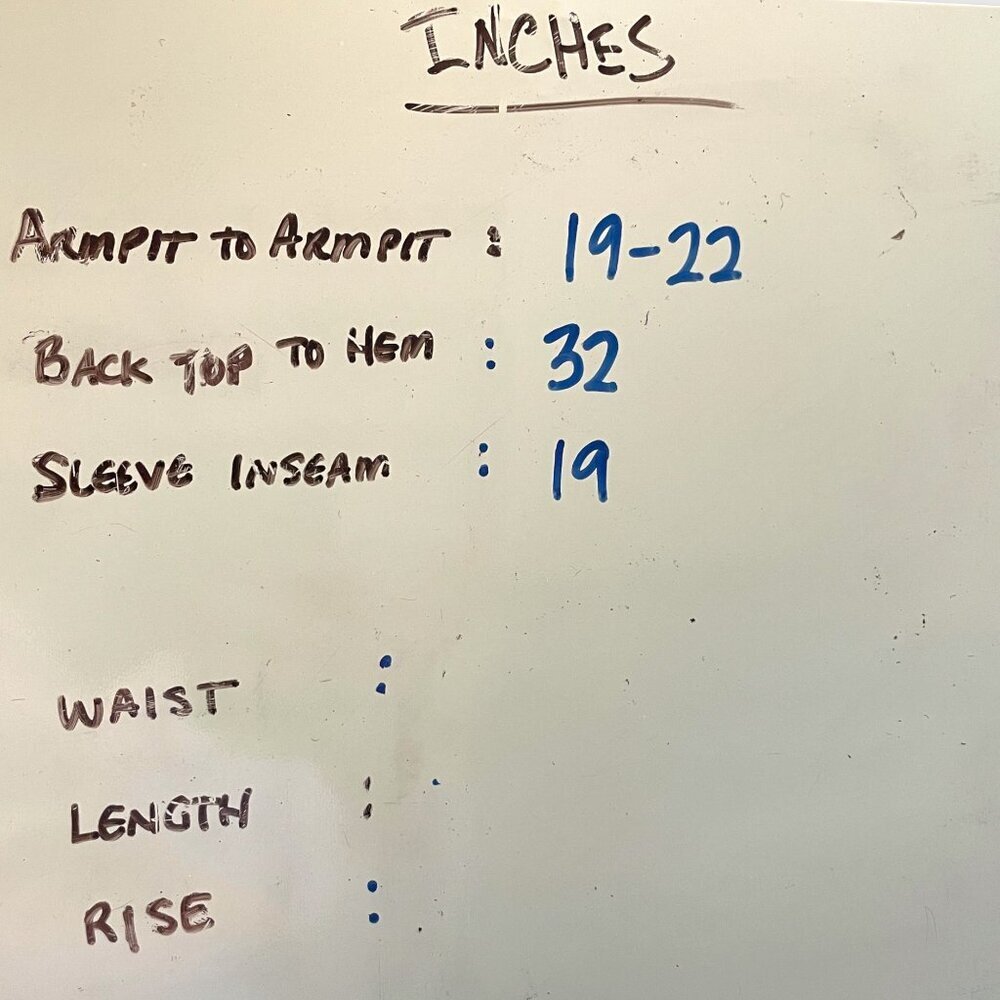 INCHES
ARMPIT TO ARMPIT : 19-22
BACK TOP TO HEM : 32
SLEEVE INSEAM : 19
WAIST :
LENGTH :
RISE :